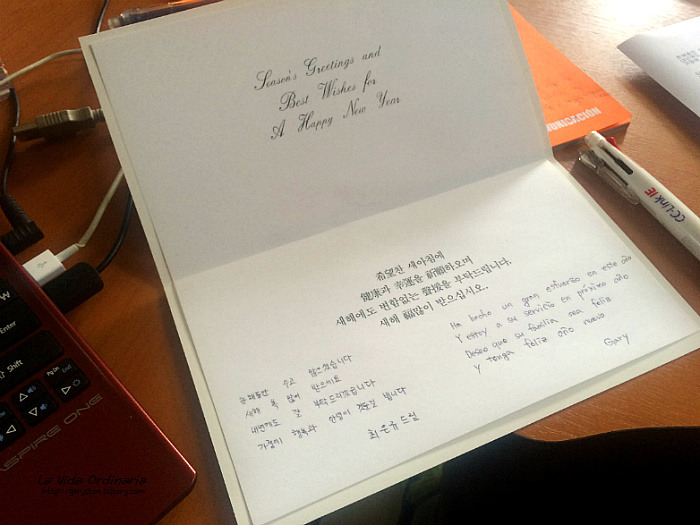 Season's Greetings and
Best Wishes for
A Happy New Year
希望찬 새아침에
健康과 幸運을 祈願하오며
새해에도 변함없는 聲援을 부탁드립니다.
새해 福많이 받으십시오.
한해동안 수고 많으셨습니다
새해 복 많이 받으시고
내년에도 잘 부탁드리겠습니다
가정이 행복과 안녕이 깃들길 빕니다
최은규 드림
Ha hecho un gran esfuerzo en este año
Y estoy a su servicio en próximo año
Deseo que su familia sea feliz
y tenga feliz año nuevo
Gary
CC-Link IE
W
Enter
Shift
ASPIRE ONE
La Vida Ordinaria